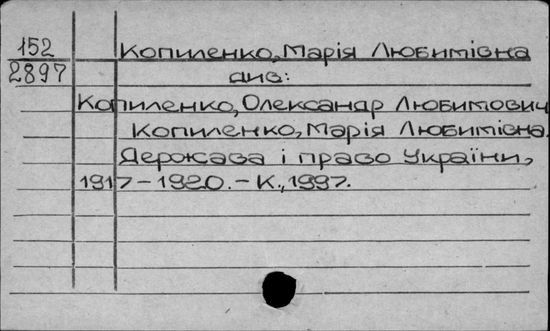 152 Копиленко, Марія Любимівна
2897 див:
Копиленко, Олександр Любимович
Копиленко, Марія Любимівна.
Держава і право України,
1917-1920.-К., 1997.